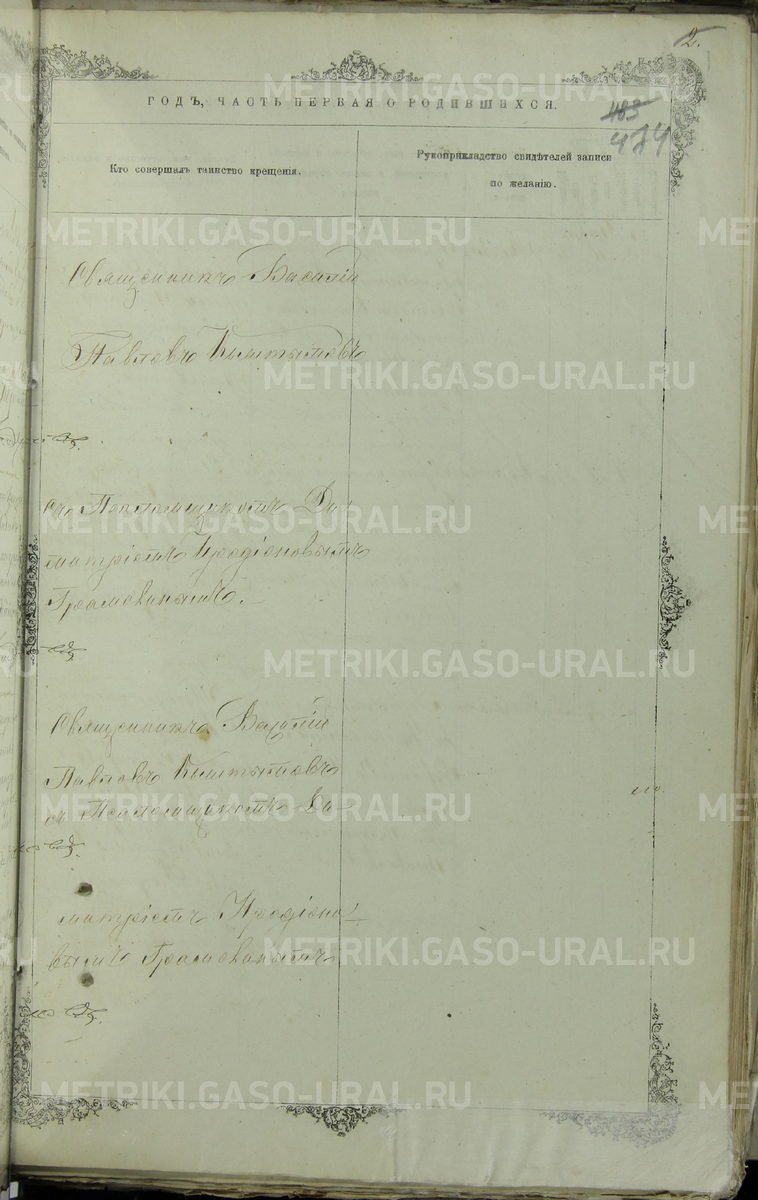 2.
ГОДЪ, ЧАСТЬ ПЕРВАЯ О РОДИВШИХСЯ.
483
474
Кто совершалъ таинство крещенія.
Рукоприкладство свидѣтелей записи
по желанію.
Священникъ Василій
Павловъ Кыштымовъ
съ Псаломщикомъ Ди-
митріемъ Иродіоновымъ
Священникъ Василій
Павловъ Кыштымовъ
съ Псаломщикомъ Ди-
митріемъ Иродіоно-
вымъ
METRIKI.GASO-URAL.RU